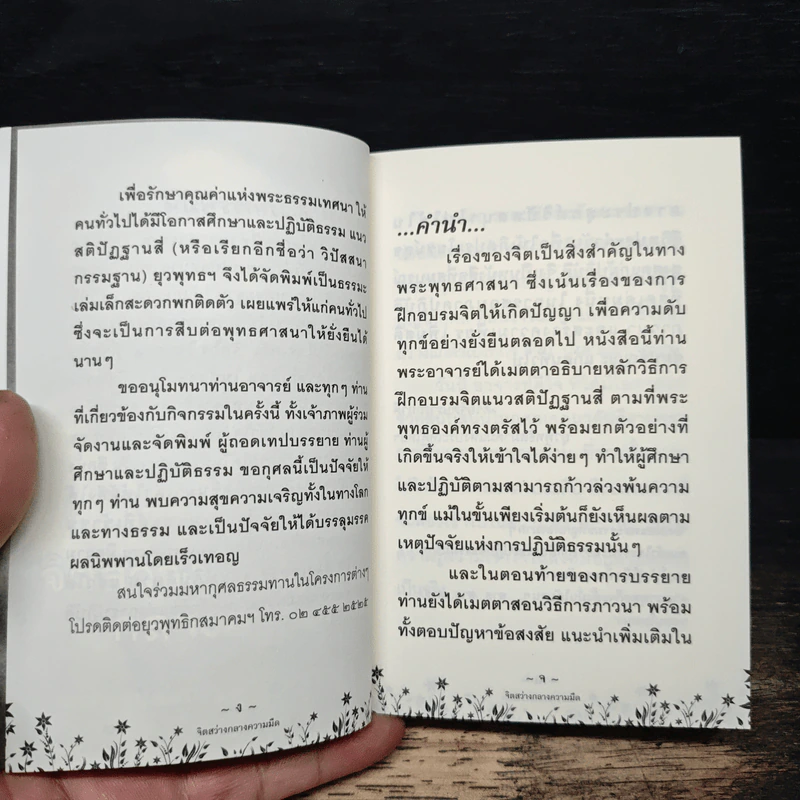 เพื่อรักษาคุณค่าแห่งพระธรรมเทศนา ให้
คนทั่วไปได้มีโอกาสศึกษาและปฏิบัติธรรม แนว
สติปัฏฐานสี่ (หรือเรียกอีกชื่อว่า วิปัสสนา
กรรมฐาน) ยุวพุทธฯ จึงได้จัดพิมพ์เป็นธรรมะ
เล่มเล็กสะดวกพกติดตัว เผยแพร่ให้แก่คนทั่วไป
ซึ่งจะเป็นการสืบต่อพุทธศาสนาให้ยั่งยืนได้
นานๆ
ขออนุโมทนาท่านอาจารย์ และทุกๆ ท่าน
ที่เกี่ยวข้องกับกิจกรรมในครั้งนี้ ทั้งเจ้าภาพผู้ร่วม
จัดงานและจัดพิมพ์ ผู้ถอดเทปบรรยาย ท่านผู้
ศึกษาและปฏิบัติธรรม ขอกุศลนี้เป็นปัจจัยให้
ทุกๆ ท่าน พบความสุขความเจริญทั้งในทางโลก
และทางธรรม และเป็นปัจจัยให้ได้บรรลุมรรค
ผลนิพพานโดยเร็วเทอญ
สนใจร่วมมหากุศลธรรมทานในโครงการต่างๆ
โปรดติดต่อยุวพุทธิกสมาคมฯ โทร. ๐๒ ๔๕๕ ๒๕๒๕
~ ง ~
จิตสว่างกลางความมืด
...คำนำ...
เรื่องของจิตเป็นสิ่งสำคัญในทาง
พระพุทธศาสนา ซึ่งเน้นเรื่องของการ
ฝึกอบรมจิตให้เกิดปัญญา เพื่อความดับ
ทุกข์อย่างยั่งยืนตลอดไป หนังสือนี้ท่าน
พระอาจารย์ได้เมตตาอธิบายหลักวิธีการ
ฝึกอบรมจิตแนวสติปัฏฐานสี่ ตามที่พระ
พุทธองค์ทรงตรัสไว้ พร้อมยกตัวอย่างที่
เกิดขึ้นจริงให้เข้าใจได้ง่ายๆ ทำให้ผู้ศึกษา
และปฏิบัติตามสามารถก้าวล่วงพ้นความ
ทุกข์ แม้ในขั้นเพียงเริ่มต้นก็ยังเห็นผลตาม
เหตุปัจจัยแห่งการปฏิบัติธรรมนั้นๆ
และในตอนท้ายของการบรรยาย
ท่านยังได้เมตตาสอนวิธีการภาวนา พร้อม
ทั้งตอบปัญหาข้อสงสัย แนะนำเพิ่มเติมใน
~ จ ~
จิตสว่างกลางความมืด